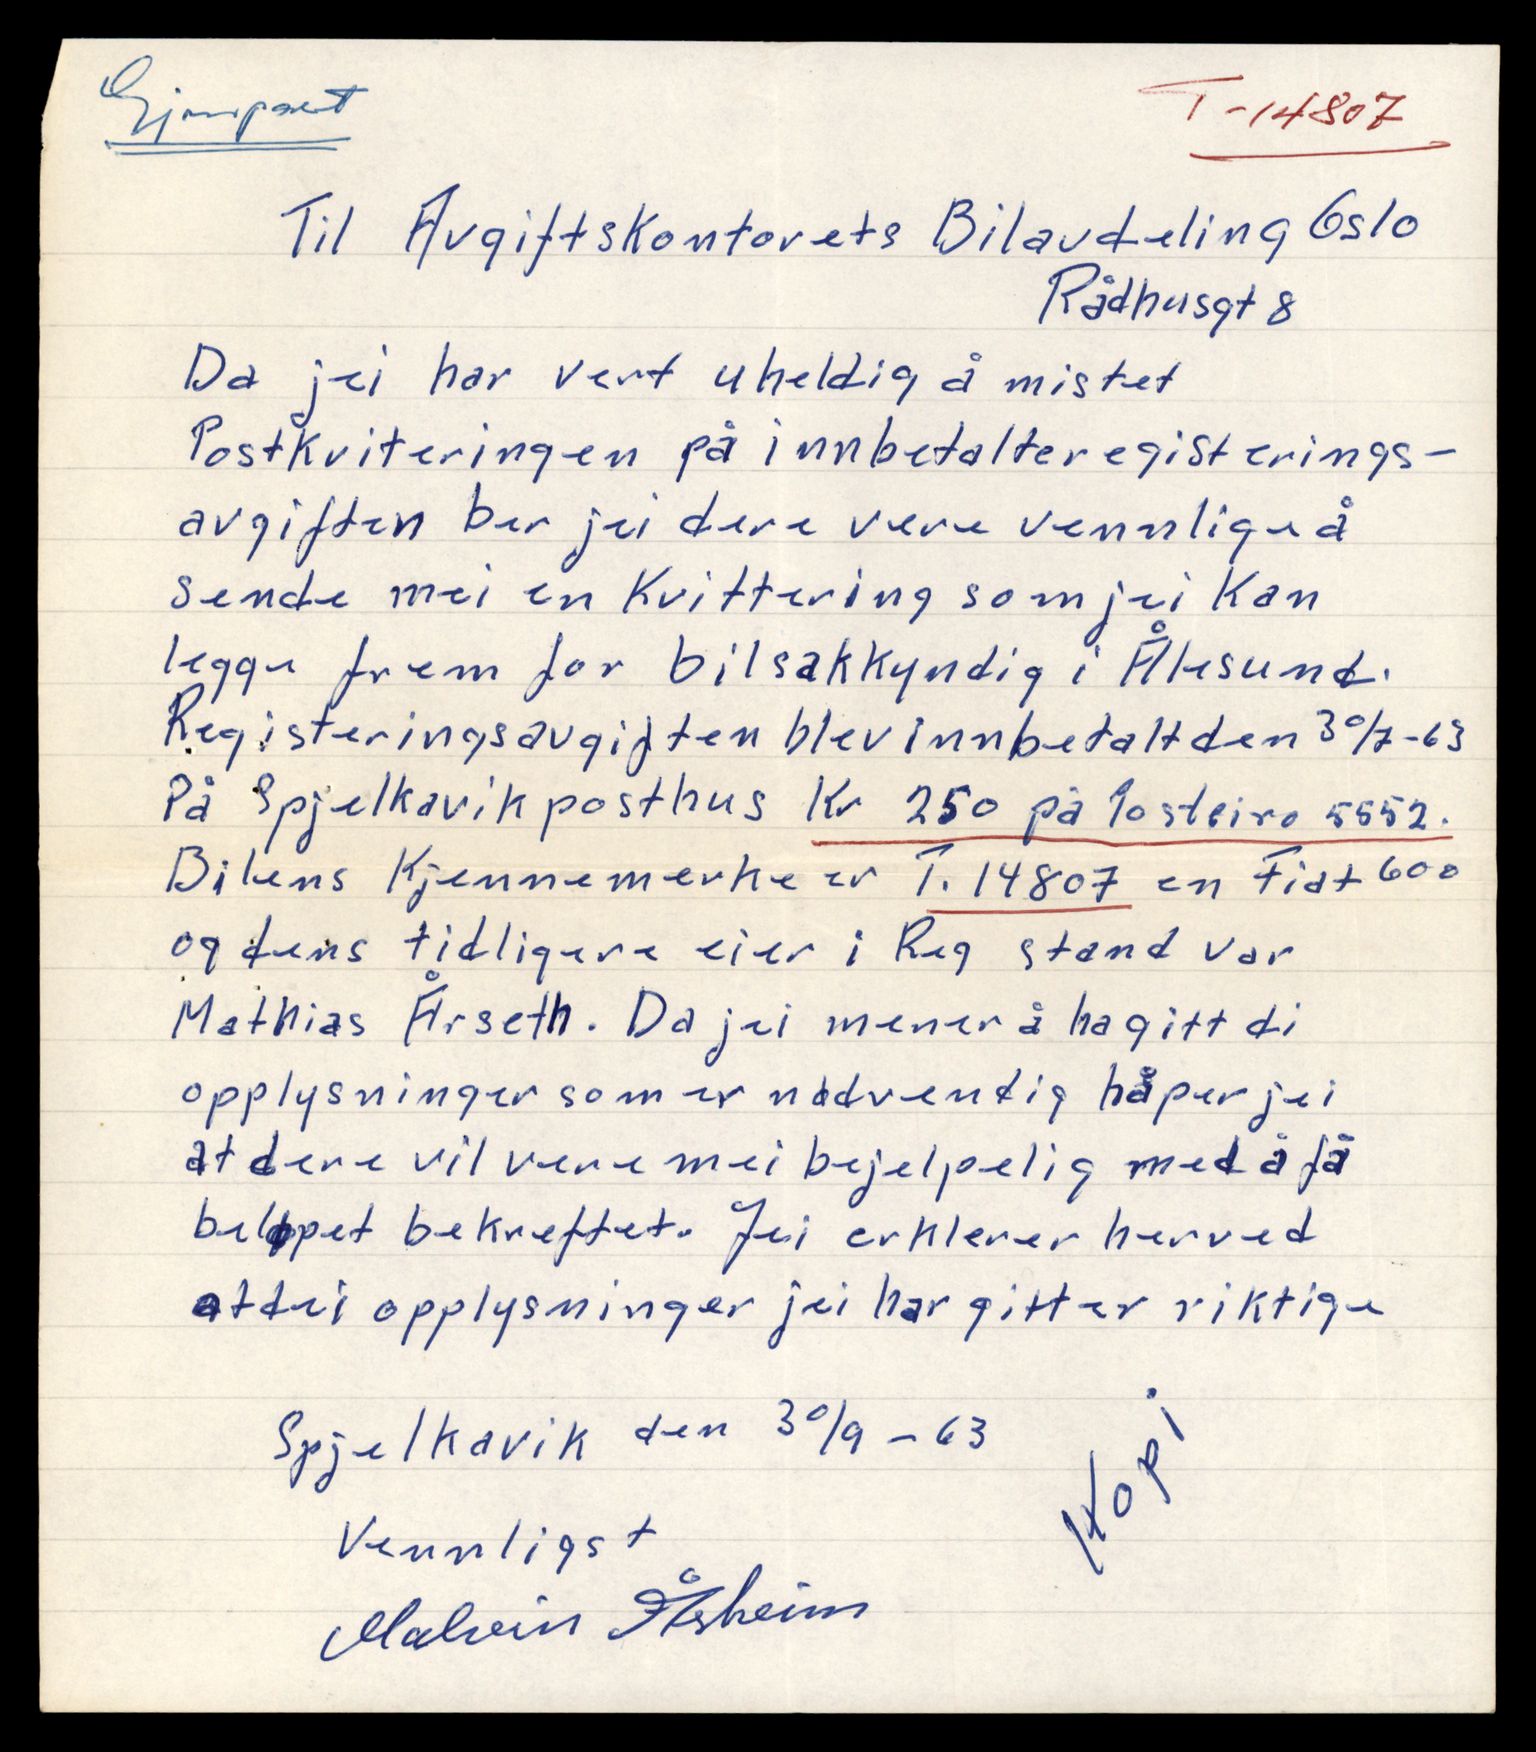 Gjenpart
T-14807
Til Avgiftskontorets Bilavdeling Oslo
Rådhusgt 8
Da jei har vert uheldig å mistet
Postkviteringen på innbetalte registerings-
avgiften ber jei dere vere vennlige å
sende mei en Kvittering som jei Kan
legge frem for bilsakkyndig i Ålesund.
Registeringsavgiften blev innbetalt den 30/7-63
På Spjelkavik posthus Kr 250 på Postgiro 5552.
Bilens Kjennemerke er T. 14807 en Fiat 600
og dens tidligere eier i Reg stand var
Mathias Årseth. Da jei mener å ha gitt di
opplysninger som er nødvendig håper jei
at dere vil vere mei bejelpelig med å få
beløpet bekreftet. Jei erklerer herved
at dei opplysninger jei har gitt er riktige
Spjelkavik den 30/9-63
Kopi
Vennligst
Malvin Åsheim